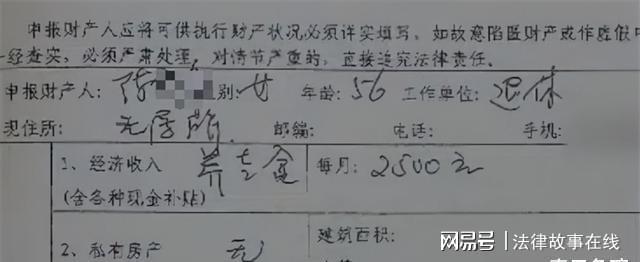 申报财产人应将可供执行财产状况必须详实填写，如故意隐匿财产或作虚假申
一经查实，必须严肃处理，对情节严重的，直接追究法律责任。
申报财产人：陈 别：女 年龄：56 工作单位：退休
现住所：无房 邮编： 电话： 手机：
1、经济收入 养老金 每月：2500元
(含各种现金补贴)
2、私有房产 无 建筑面积：
网易号 | 法律故事在线